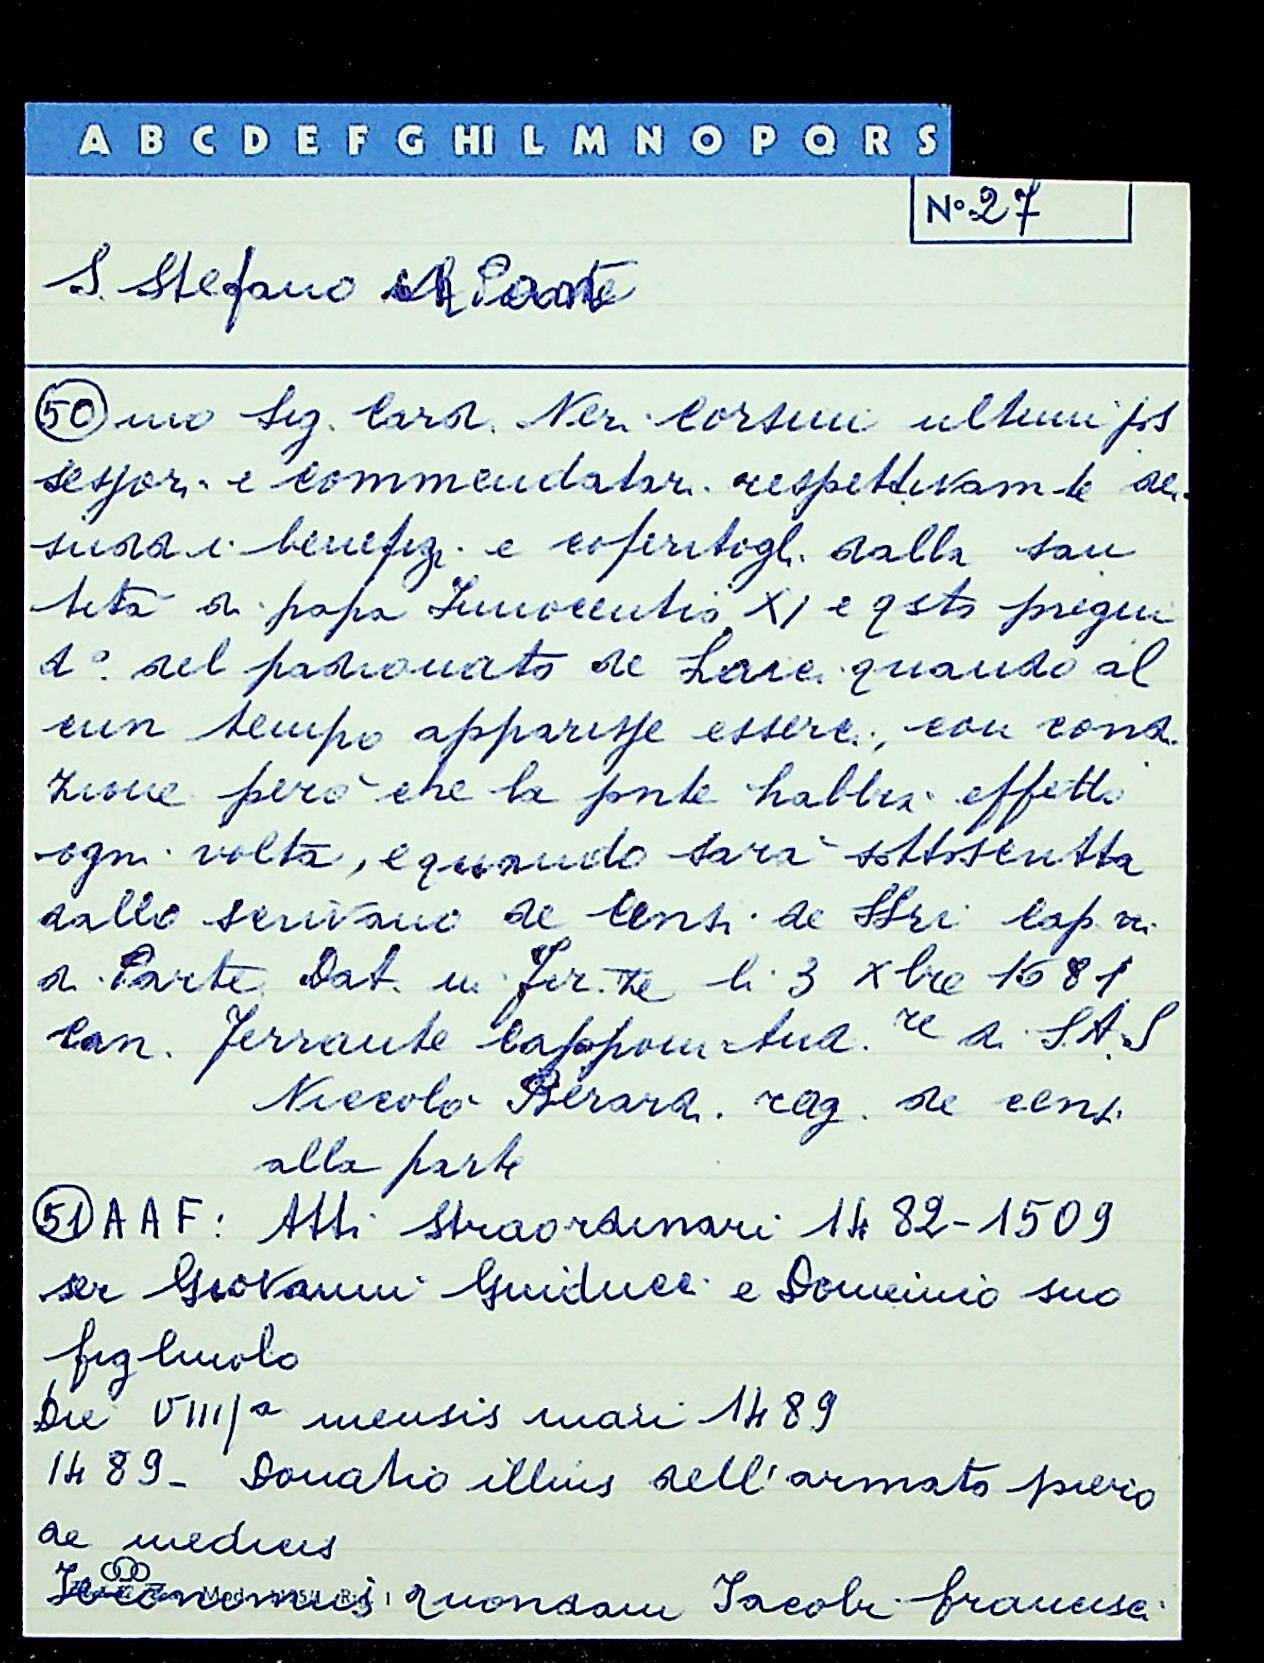 A B C D E F G HI L M N O P Q R S
N° 27
S. Stefano al Ponte
50 mo Sig. Card. Neri Corsini ultimi pos
sessori e commendatari respettivamte dei
sudd i benefizi e coferitogli dalla san
tità di papa Innocentio XI e qsto pregiu
d° del padronato de Laici quando al
cun tempo apparisse esserci, con condi
zione però che la pnte habbia effetto
ogni volta, e quando sarà sottoscritta
dallo scrivano de Censi de SSri Cap ni
di Parte Dat. in Fir.ze li 3 Xbre 1681
Can. Ferrante Capponi Aud. re di S.A.S
Niccolò Berardi rag. de censi
alla parte
51 A A F: Atti straordinari 1482-1509
ser Giovanni Guiducci e Domeinio suo
figliuolo
Die VIIIIa mensis mari 1489
1489- Donatio illius dell'armato piero
de medicis
quondam Iacobi francisci